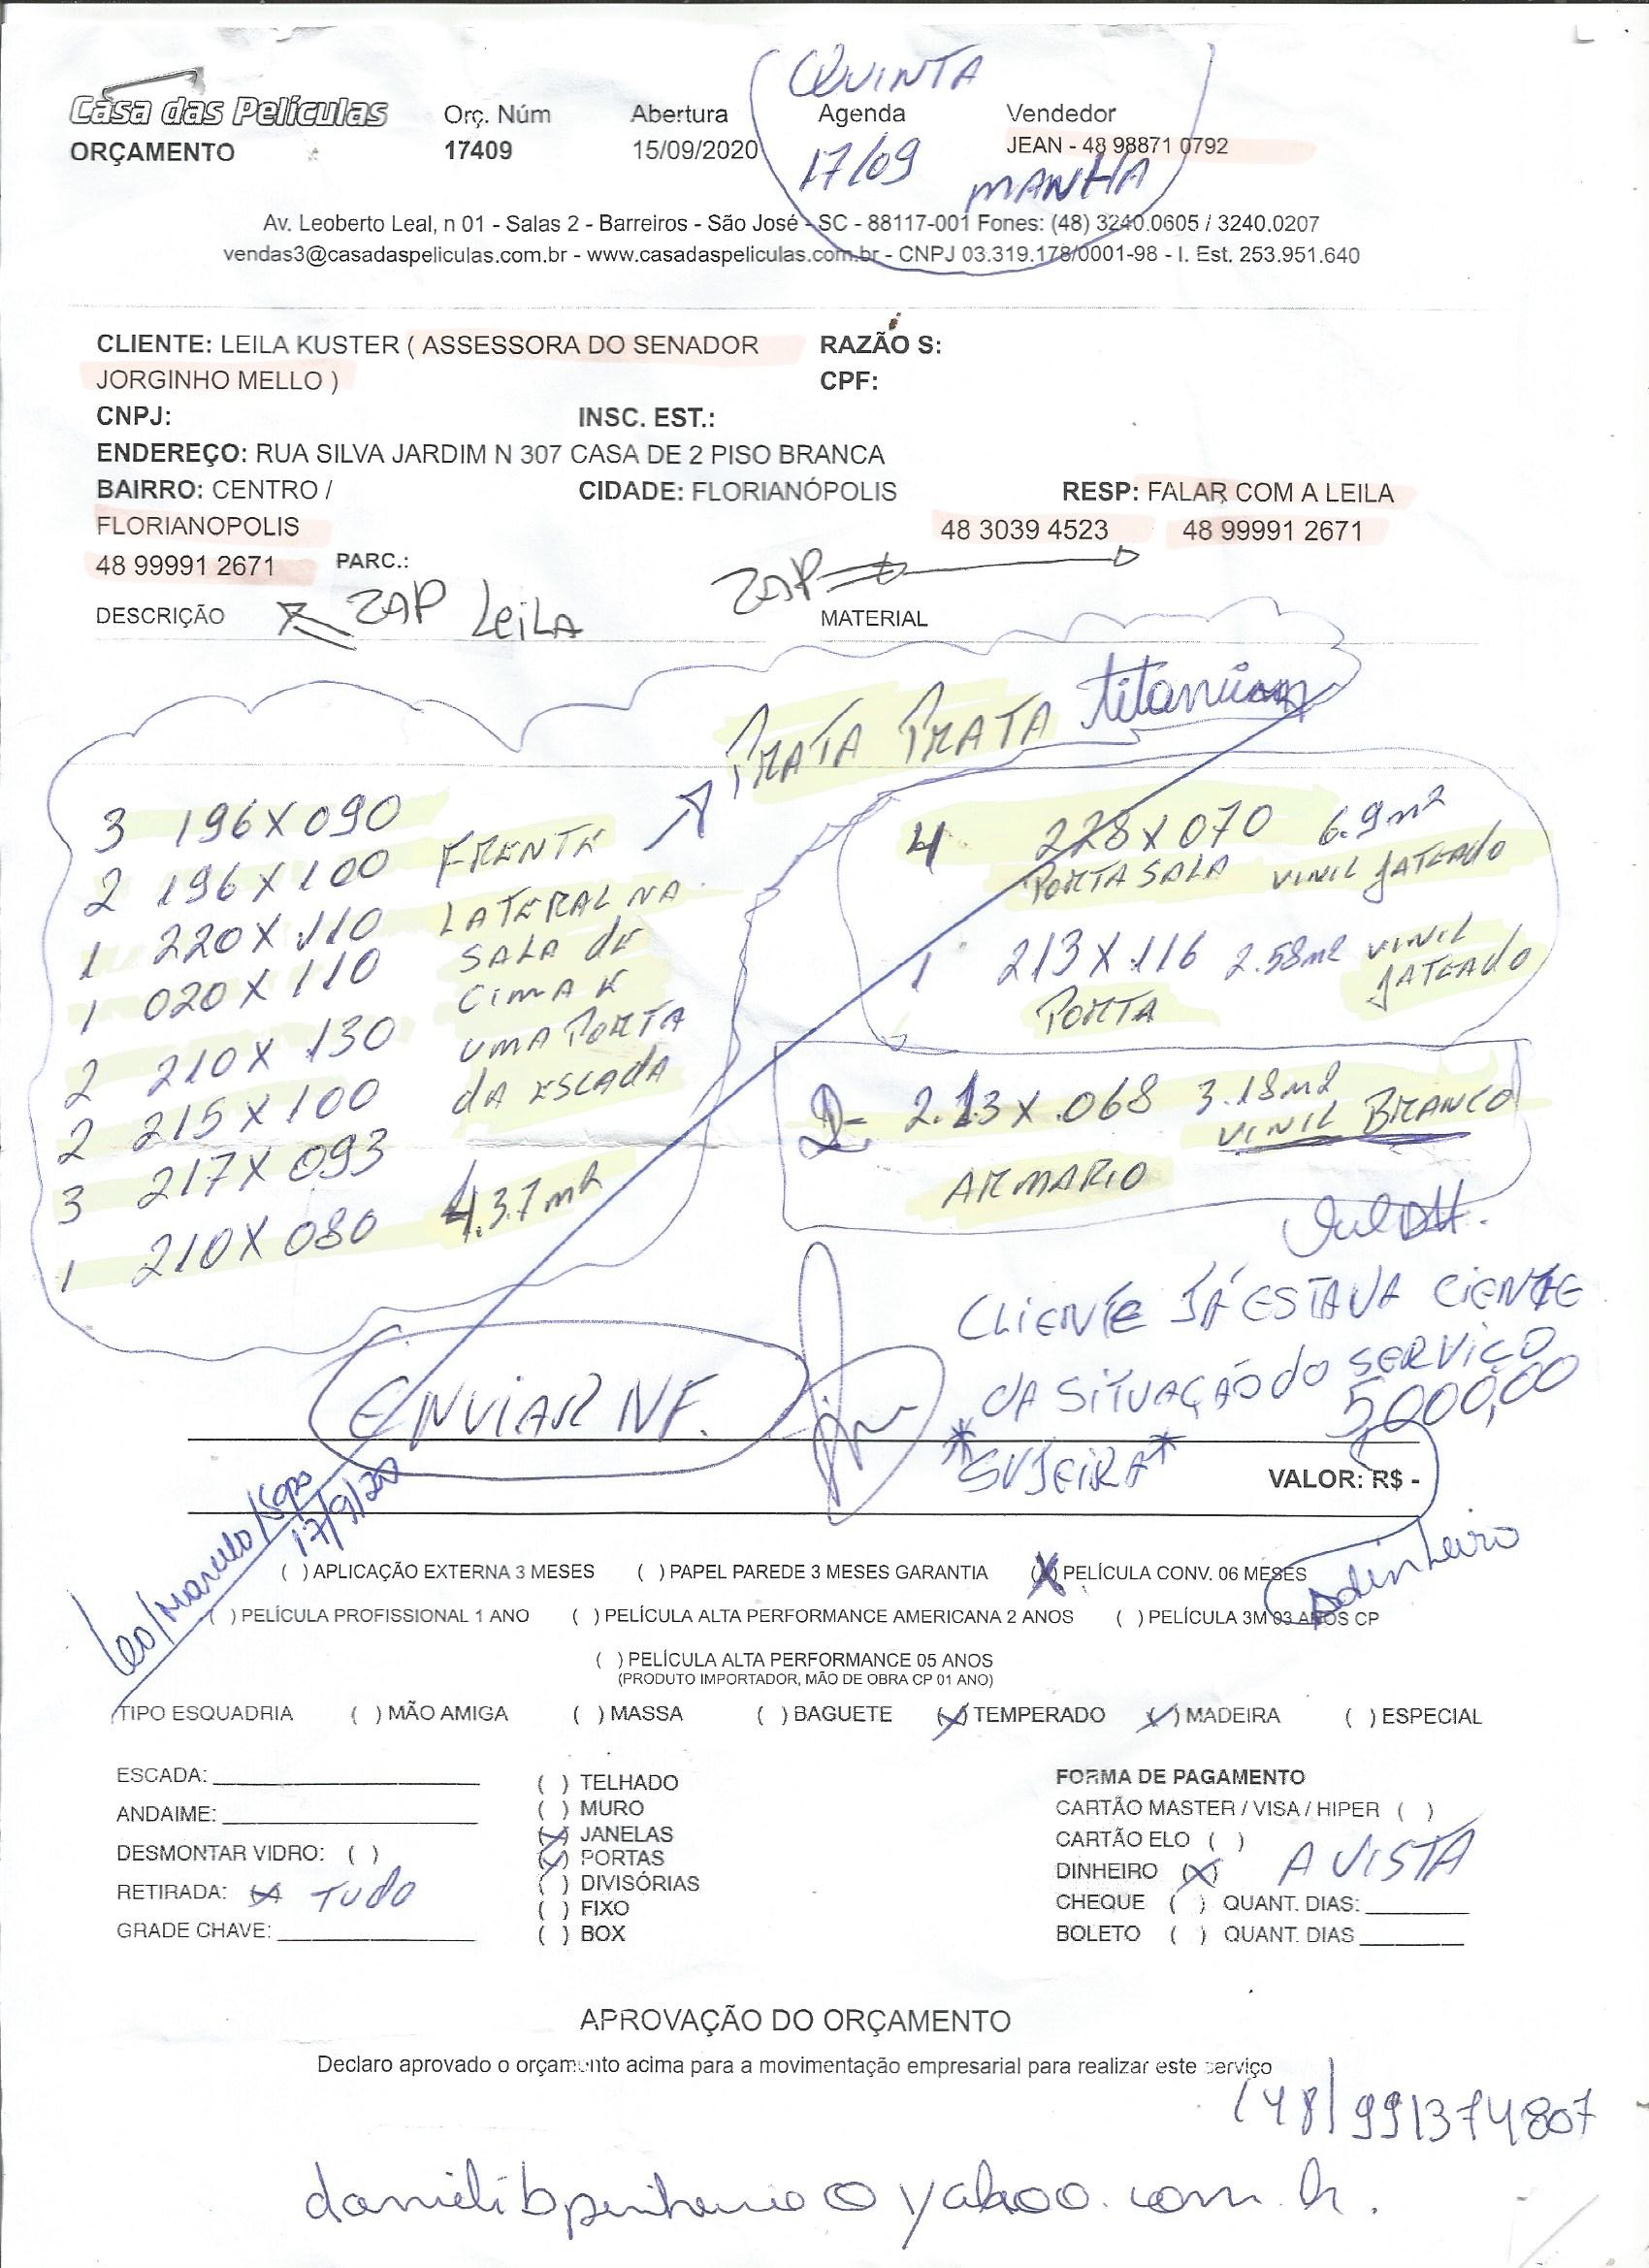 QUINTA
Casa das Películas Orç. Núm Abertura Agenda Vendedor
ORÇAMENTO 17409 15/09/2020 17/09 JEAN - 48 98871 0792
MANHA
Av. Leoberto Leal, n 01 - Salas 2 - Barreiros - São José - SC - 88117-001 Fones: (48) 3240.0605 / 3240.0207
vendas3@casadaspeliculas.com.br - www.casadaspeliculas.com.br - CNPJ 03.319.178/0001-98 - I. Est. 253.951.640
CLIENTE: LEILA KUSTER ( ASSESSORA DO SENADOR RAZÃO S:
JORGINHO MELLO ) CPF:
CNPJ: INSC. EST.:
ENDEREÇO: RUA SILVA JARDIM N 307 CASA DE 2 PISO BRANCA
BAIRRO: CENTRO / CIDADE: FLORIANÓPOLIS RESP: FALAR COM A LEILA
FLORIANOPOLIS 48 3039 4523 48 99991 2671
48 99991 2671 PARC.:
ZAP LeiLA ZAP
DESCRIÇÃO MATERIAL
PRATA PRATA titanium
3 196X090
2 196X100 FRENTE
1 220X.110 LATERAL NA
1 020X110 SALA de
2 210X.130 CIMA E
2 215X100 UMA PORTA
3 217X093 dA ESCAdA
1 210X080 4.37m2
4 228X070 6.9m2
PORTA SALA VINIL JATEADO
1 213X.116 2.58m2 VINIL
PORTA JATEADO
2- 2.13X.068 3.18m2
VINIL BRANCO
ARMARIO
CLIENTE JÁ ESTAVA CIENTE
ENVIAR NF. DA SITUAÇÃO do SERVIÇO
5,000,00
*SUJEIRA* VALOR: R$ -
Leo/Marcelo/
17/9/20
Adinheiro
( ) APLICAÇÃO EXTERNA 3 MESES ( ) PAPEL PAREDE 3 MESES GARANTIA (X) PELÍCULA CONV. 06 MESES
( ) PELÍCULA PROFISSIONAL 1 ANO ( ) PELÍCULA ALTA PERFORMANCE AMERICANA 2 ANOS ( ) PELÍCULA 3M 03 ANOS CP
( ) PELÍCULA ALTA PERFORMANCE 05 ANOS
(PRODUTO IMPORTADOR, MÃO DE OBRA CP 01 ANO)
TIPO ESQUADRIA ( ) MÃO AMIGA ( ) MASSA ( ) BAGUETE (X) TEMPERADO (X) MADEIRA ( ) ESPECIAL
ESCADA:
ANDAIME:
DESMONTAR VIDRO: ( )
RETIRADA: (X) TUdO
GRADE CHAVE:
( ) TELHADO
( ) MURO
(X) JANELAS
(X) PORTAS
( ) DIVISÓRIAS
( ) FIXO
( ) BOX
FORMA DE PAGAMENTO
CARTÃO MASTER / VISA / HIPER ( )
CARTÃO ELO ( )
DINHEIRO (X) A VISTA
CHEQUE ( ) QUANT. DIAS:
BOLETO ( ) QUANT. DIAS
APROVAÇÃO DO ORÇAMENTO
Declaro aprovado o orçamento acima para a movimentação empresarial para realizar este serviço
(48)991374807